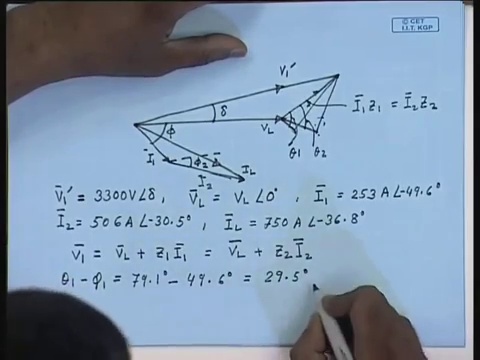 © CET
I.I.T. KGP
V̄₁′
δ
V_L
Ī₁Z₁ = Ī₂Z₂
φ
Ī₁
φ₂
Ī₂
I_L
θ₁ θ₂
V̄₁′ = 3300V∠δ, V̄_L = V_L∠0°, Ī₁ = 253A∠-49.6°
Ī₂ = 506A∠-30.5°, Ī_L = 750A∠-36.8°
V̄₁ = V̄_L + Z₁Ī₁ = V̄_L + Z₂Ī₂
θ₁ - φ₁ = 79.1° - 49.6° = 29.5°